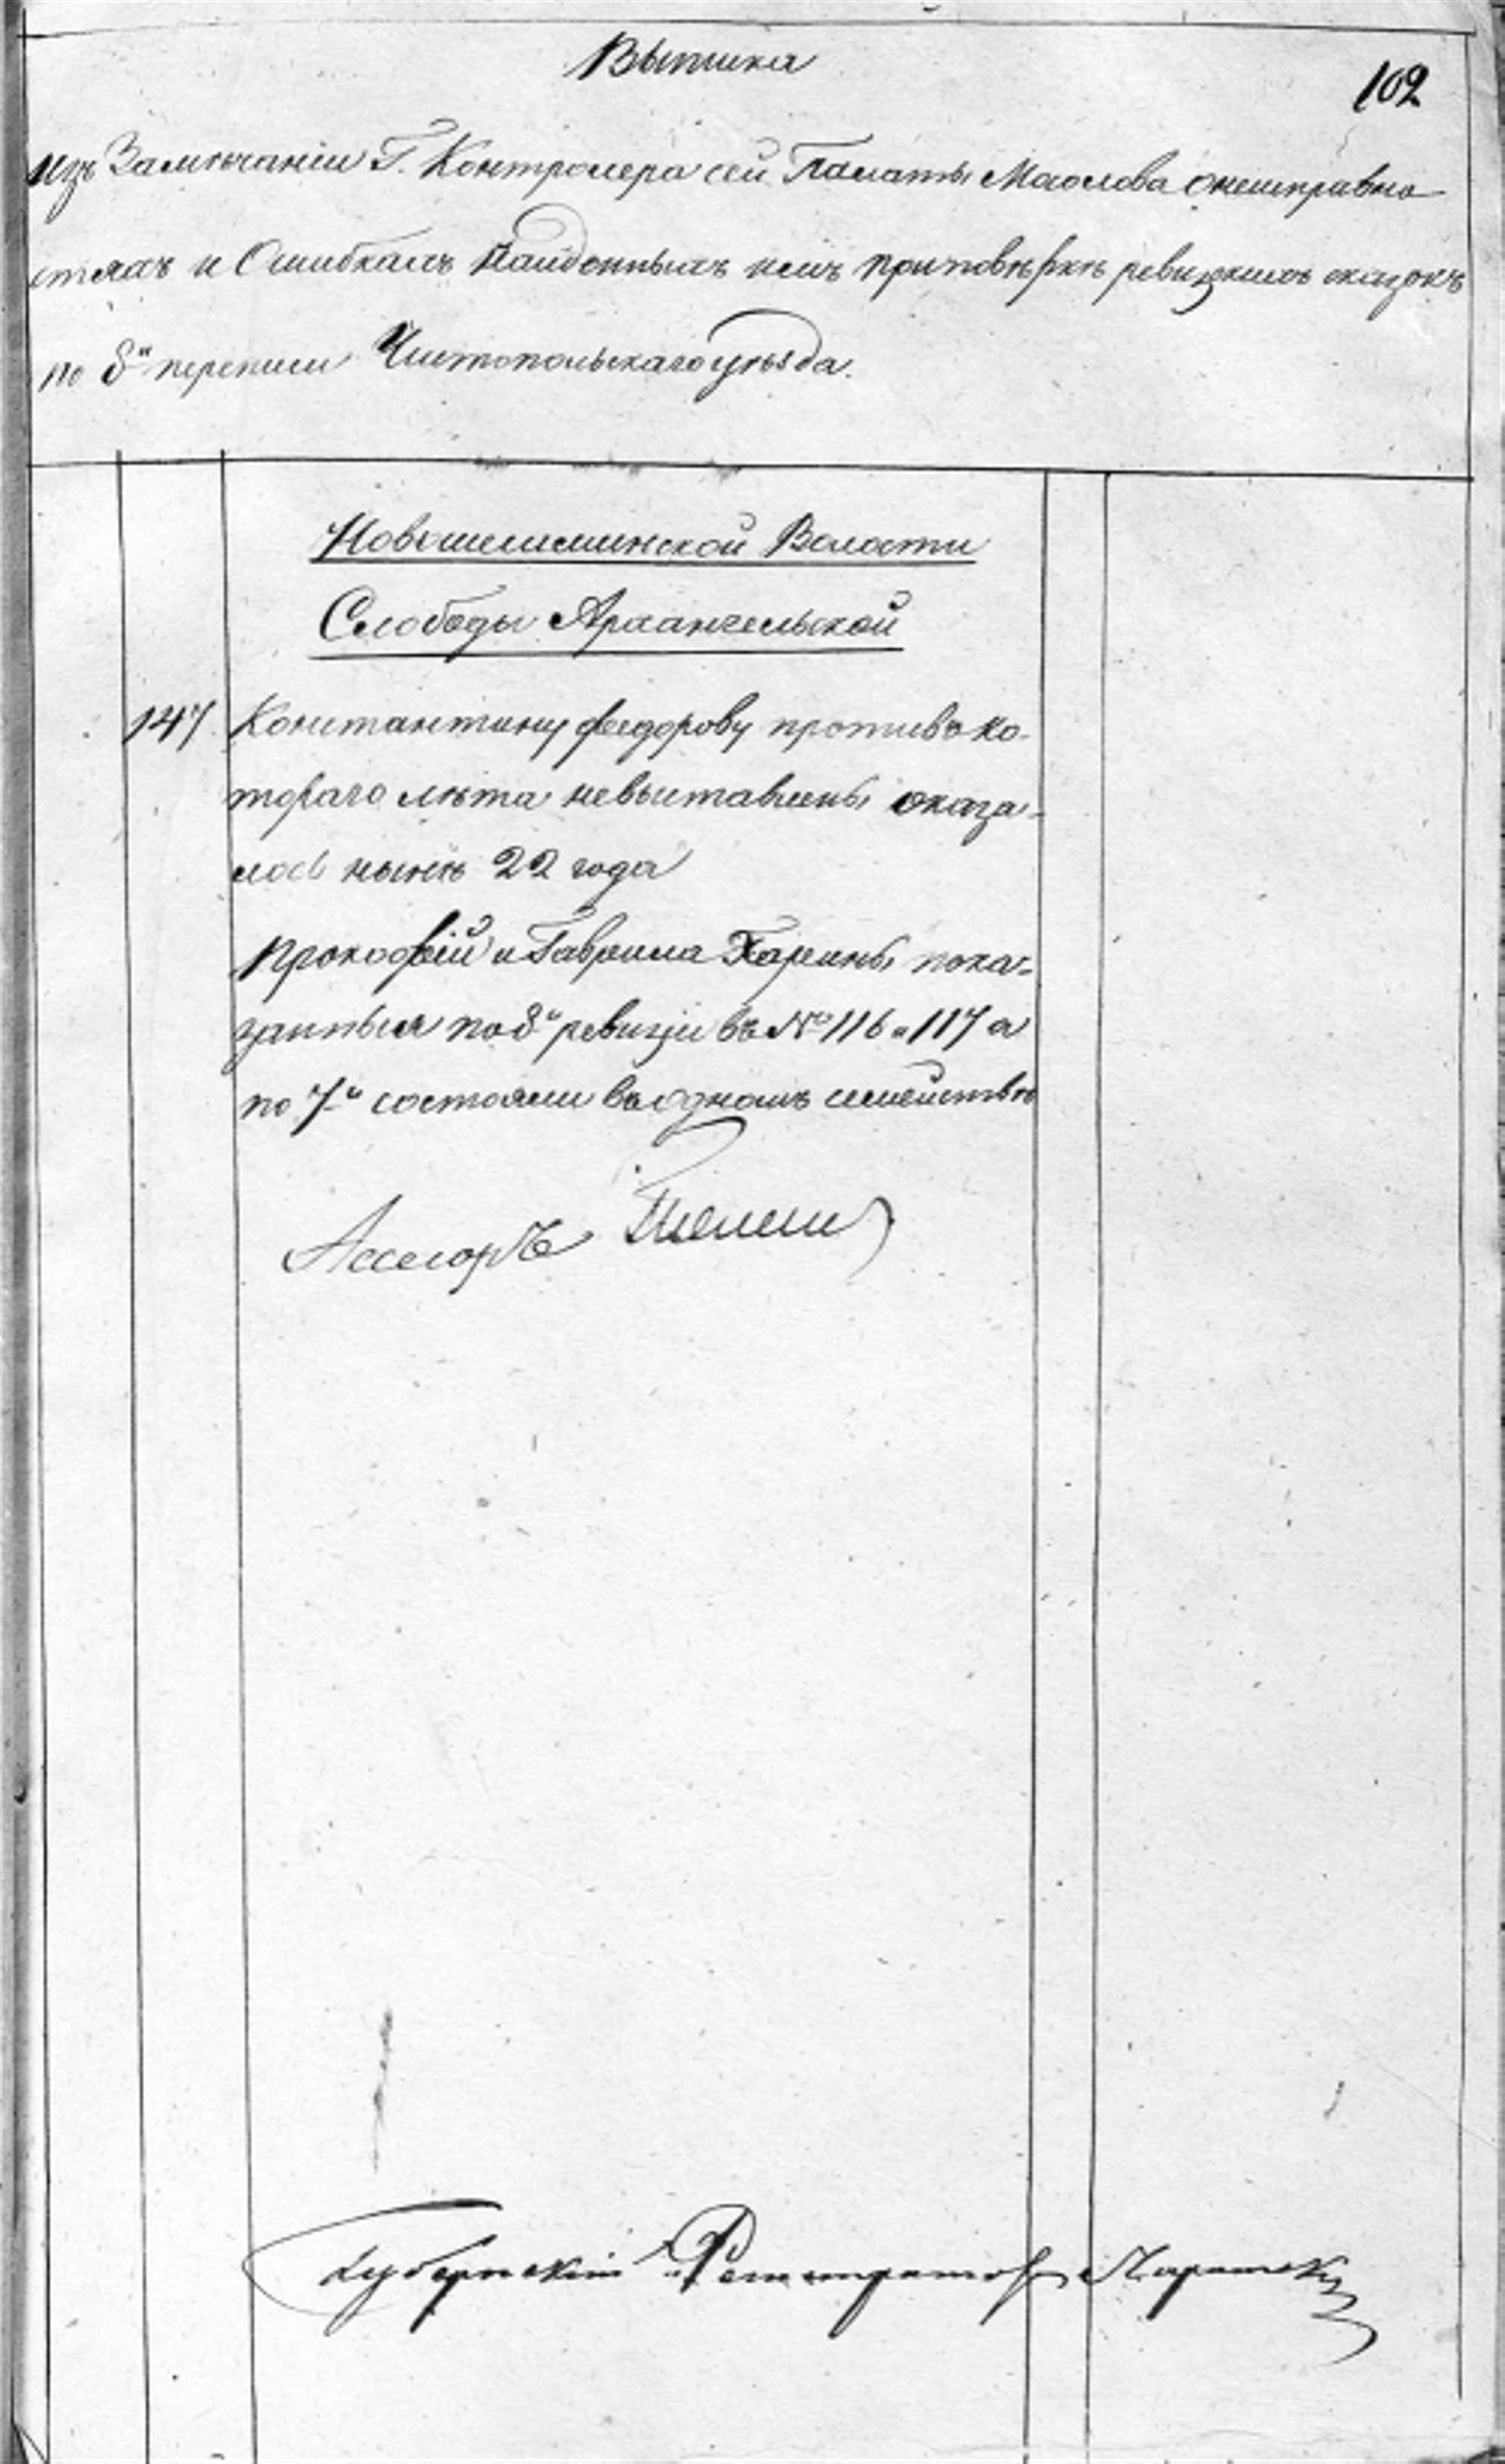 Выписка
102
изъ Замѣчаніи Г. Контролера сей Палаты Маслова о неисправно
стяхъ и Ошибкахъ найденныхъ имъ при повѣркѣ ревизскихъ сказокъ
по 8й переписи Чистопольскаго уѣзда.
Новошешминской Волости
Слободы Архангельской
147 Константину федорову противъ ко-
тораго лѣта невыставлены оказа-
лось нынѣ 22 года
Прокофій и Гаврила Харины пока-
занныя по 8й ревизіи въ № 116 и 117 а
по 7й состояли въ одномъ семействѣ
Ассесоръ
Губернскій Регистраторъ